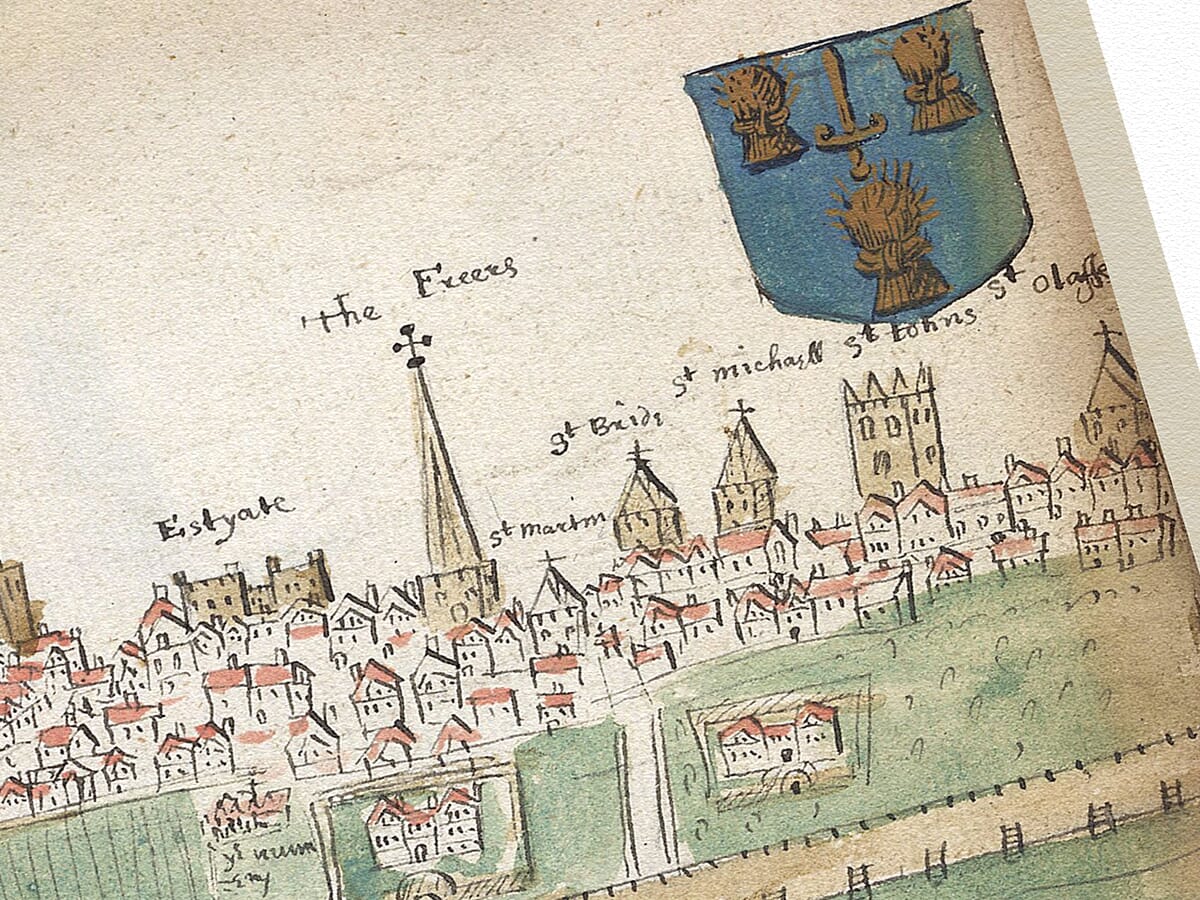 The Freers
st Olaffs
st Iohns
st michaell
st Bride
st martin
Estyate
ye nunn